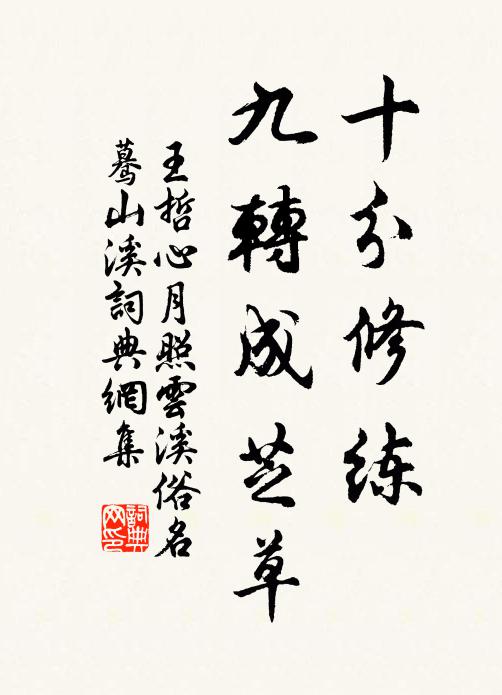 十分修练
九轉成芝草
王哲心月照雲溪俗名
驀山溪詞典網集
詞典
网印